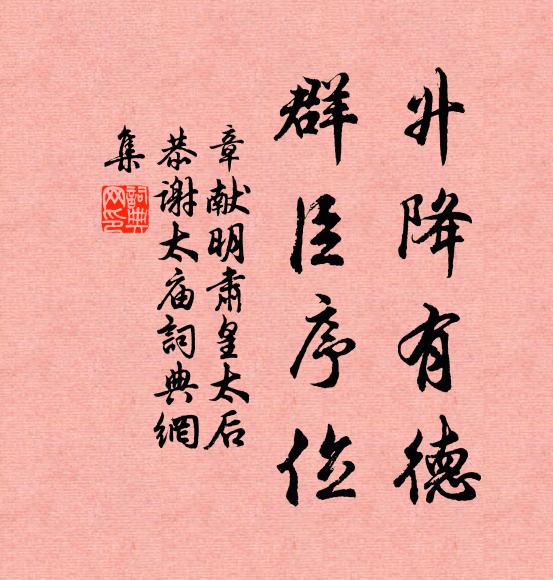 升降有德
群臣序位
章献明肃皇太后
恭谢太庙詞典網
集
詞典
网印